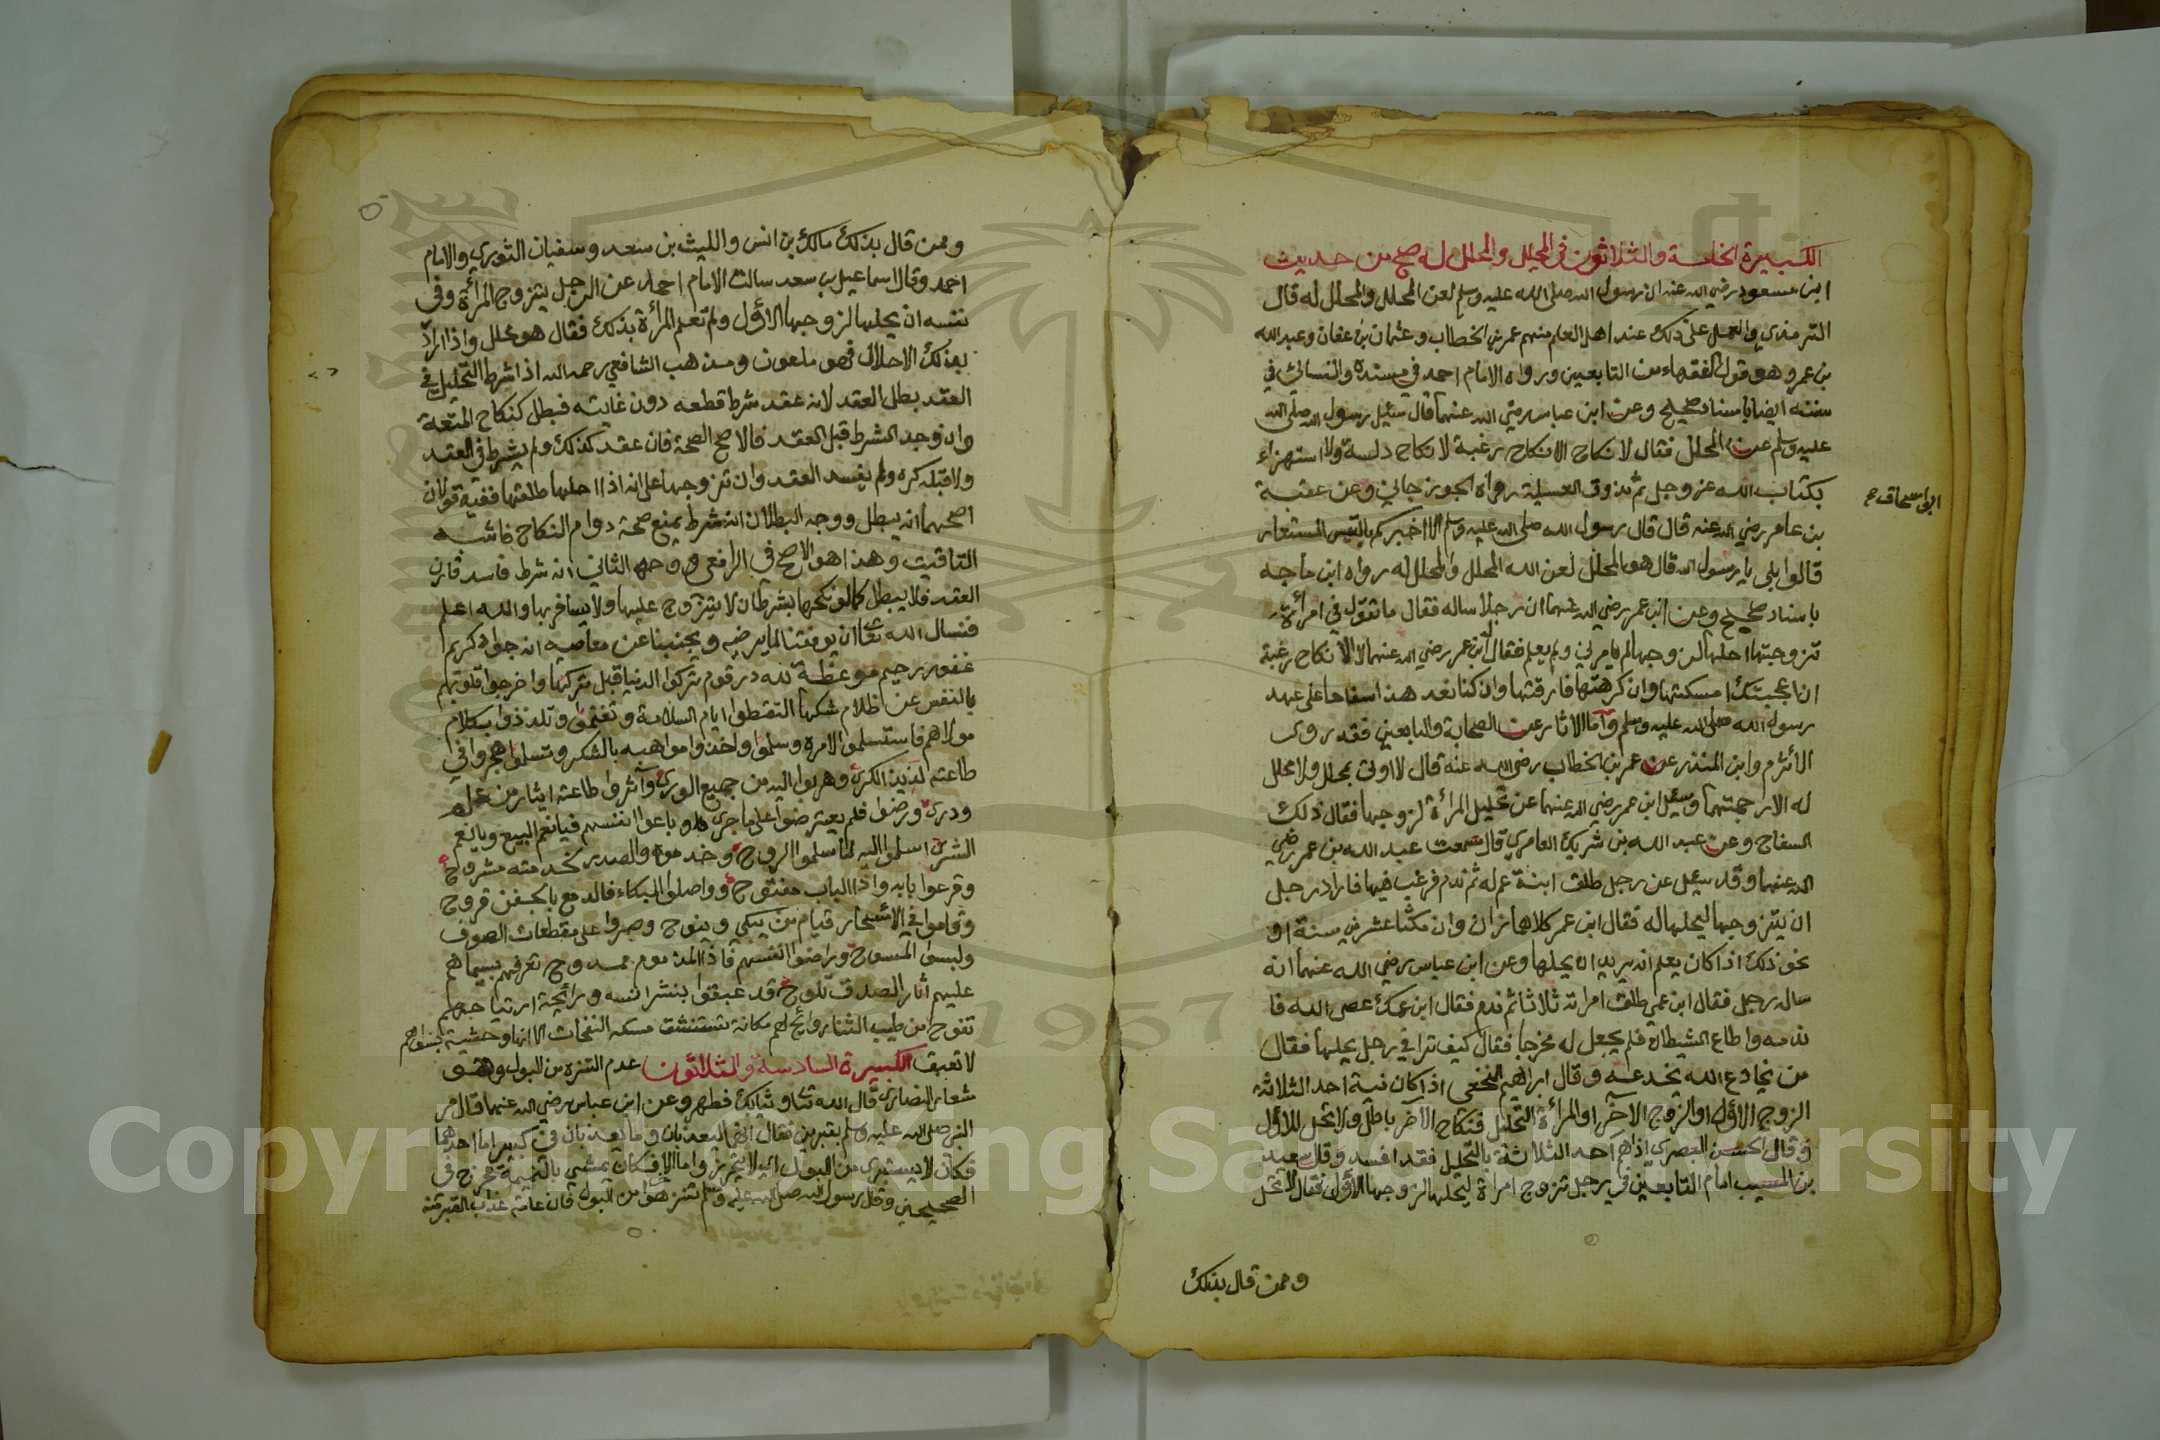 الكبيرة الخامسة والثلاثون في المحلل والمحلل له صح من حديث
ابن مسعود رضي الله عنه ان رسول الله صلى الله عليه وسلم لعن المحلل والمحلل له قال
الترمذي والعمل على ذلك عند اهل العلم منهم عمر بن الخطاب وعثمان بن عفان وعبد الله
بن عمر وهو قول الفقهاء من التابعين ورواه الامام احمد في مسنده والنسائي في
سننه ايضا باسناد صحيح وعن ابن عباس رضي الله عنهما قال سئل رسول الله صلى الله
عليه وسلم عن المحلل فقال لا نكاح الا نكاح رغبة لا نكاح دلسة ولا استهزاء
بكتاب الله عز وجل ثم تذوق العسيلة رواه الجوزجاني وعن عقبة
ابو اسحاق
بن عامر رضي الله عنه قال قال رسول الله صلى الله عليه وسلم الا اخبركم بالتيس المستعار
قالوا بلى يا رسول الله قال هو المحلل لعن الله المحلل والمحلل له رواه ابن ماجه
باسناد صحيح وعن ابن عمر رضي الله عنهما ان رجلا ساله فقال ما تقول في امرأة
تزوجتها احلها لزوجها لم يامرني ولم يعلم فقال ابن عمر رضي الله عنهما لا الا نكاح رغبة
ان اعجبتك امسكتها وان كرهتها فارقتها وان كنا نعد هذا سفاحا على عهد
رسول الله صلى الله عليه وسلم واما الاثار عن الصحابة والتابعين فقد روى
الاثرم وابن المنذر عن عمر بن الخطاب رضي الله عنه قال لا اوتى بمحلل ولا محلل
له الا رجمتهما وسئل ابن عمر رضي الله عنهما عن تحليل المرأة لزوجها فقال ذلك
السفاح وعن عبد الله بن شريك العامري قال سمعت عبد الله بن عمر رضي
الله عنهما وقد سئل عن رجل طلق ابنة عم له ثم ندم فرغب فيها فاراد رجل
ان يتزوجها ليحلها له فقال ابن عمر كلاهما زان وان مكثا عشرين سنة او
نحو ذلك اذا كان يعلم انه يريد ان يحلها وعن ابن عباس رضي الله عنهما انه
ساله رجل فقال ابن عمي طلق امراته ثلاثا ثم ندم فقال ابن عمك عصى الله فا
ندمه واطاع الشيطان فلم يجعل له مخرجا فقال كيف ترا في رجل يحلها فقال
من يخادع الله يخدعه وقال ابراهيم النخعي اذا كان نية احد الثلاثة
الزوج الاول او الزوج الآخر او المرأة التحليل فنكاح الآخر باطل ولا تحل للاول
وقال الحسن البصري اذا هم احد الثلاثة بالتحليل فقد افسد وقال سعيد
بن المسيب امام التابعين في رجل تزوج امراة ليحلها لزوجها الاول فقال لا تحل
وممن قال بذلك
وممن قال بذلك مالك بن انس والليث بن سعد وسفيان الثوري والامام
احمد وقال اسماعيل بن سعد سالت الامام احمد عن الرجل يتزوج المرأة وفي
نفسه ان يحللها لزوجها الاول ولم تعلم المرأة بذلك فقال هو محلل واذا اراد
بذلك الاحلال فهو ملعون ومذهب الشافعي رحمه الله اذا شرط التحليل في
العقد بطل العقد لانه عقد شرط قطعه دون غايته فبطل كنكاح المتعة
وان وجد الشرط قبل العقد فالاصح الصحة فان عقد كذلك ولم يشرط في العقد
ولا قبله كره ولم يفسد العقد وان تزوجها على انه اذا احلها طلقها ففيه قولان
اصحهما انه يبطل ووجه البطلان انه شرط يمنع صحة دوام النكاح فاشبه
التاقيت وهذا هو الاصح في الرافعي ووجه الثاني انه شرط فاسد قارن
العقد فلا يبطل كما لو نكحها بشرط ان لا يتزوج عليها ولا يسافر بها والله اعلم
فنسال الله تعالى ان يوفقنا لما يرضيه ويجنبنا عن معاصيه انه جواد كريم
غفور رحيم موعظة لله در قوم تركوا الدنيا قبل تركها واخرجوا قلوبهم
بالنفس عن اظلام شكها التقطوا ايام السلامة وتلذذوا بكلام
مولاهم فاستسلموا لامره وسلموا واخذوا مواهبه بالشكر وتسلوا هجروا في
طاعته لذيذ الكرى وهربوا اليه من جميع الورى وآثروا طاعته ايثار من علم
ودرى ورضوا فلم يعترضوا على ما جرى وباعوا انفسهم فيا نعم البيع ويا نعم
الشرى اسلموا اليه لما سلموا الروح وخدموه والصدر لخدمته مشروح
وقرعوا بابه واذا الباب مفتوح وواصلوا البكاء فالدمع بالجفن قروح
وقاموا في الاسحار قيام من يبكي وينوح وصبروا على مقطعات الصوف
ولبسوا المسوح وراضوا انفسهم فاذا المذموم ممدوح تعرفهم بسيماهم
عليهم آثار الصدق تلوح قد عبقوا بنشر انسه ورائحة ارتياحهم
تفوح من طيب الثنا روائح لهم مكانة تستنشق مسكه النفحات الا انها وحشية بسواهم
لا تعبق الكبيرة السادسة والثلاثون عدم التنزه من البول وهو
شعار النصارى قال الله تعالى وثيابك فطهر وعن ابن عباس رضي الله عنهما قال مر
النبي صلى الله عليه وسلم بقبرين فقال انهما ليعذبان وما يعذبان في كبير اما احدهما
فكان لا يستبري من البول اي لا يتحرز واما الاخر فكان يمشي بالنميمة مخرج في
الصحيحين وقال رسول الله صلى الله عليه وسلم تنزهوا من البول فان عامة عذاب القبر منه
Copyright © King Saud University
1957